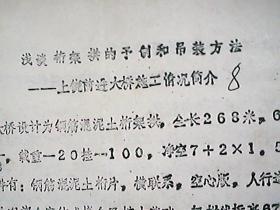 浅谈桁架拱的予制和吊装方法
——上饶前进大桥施工情况简介 8
大桥设计为钢筋混泥土桁架拱,全长268米,6
载重—20挂——100,净空7+2×1.5
件有:钢筋混泥土桁片,横联系,空心板,人行道